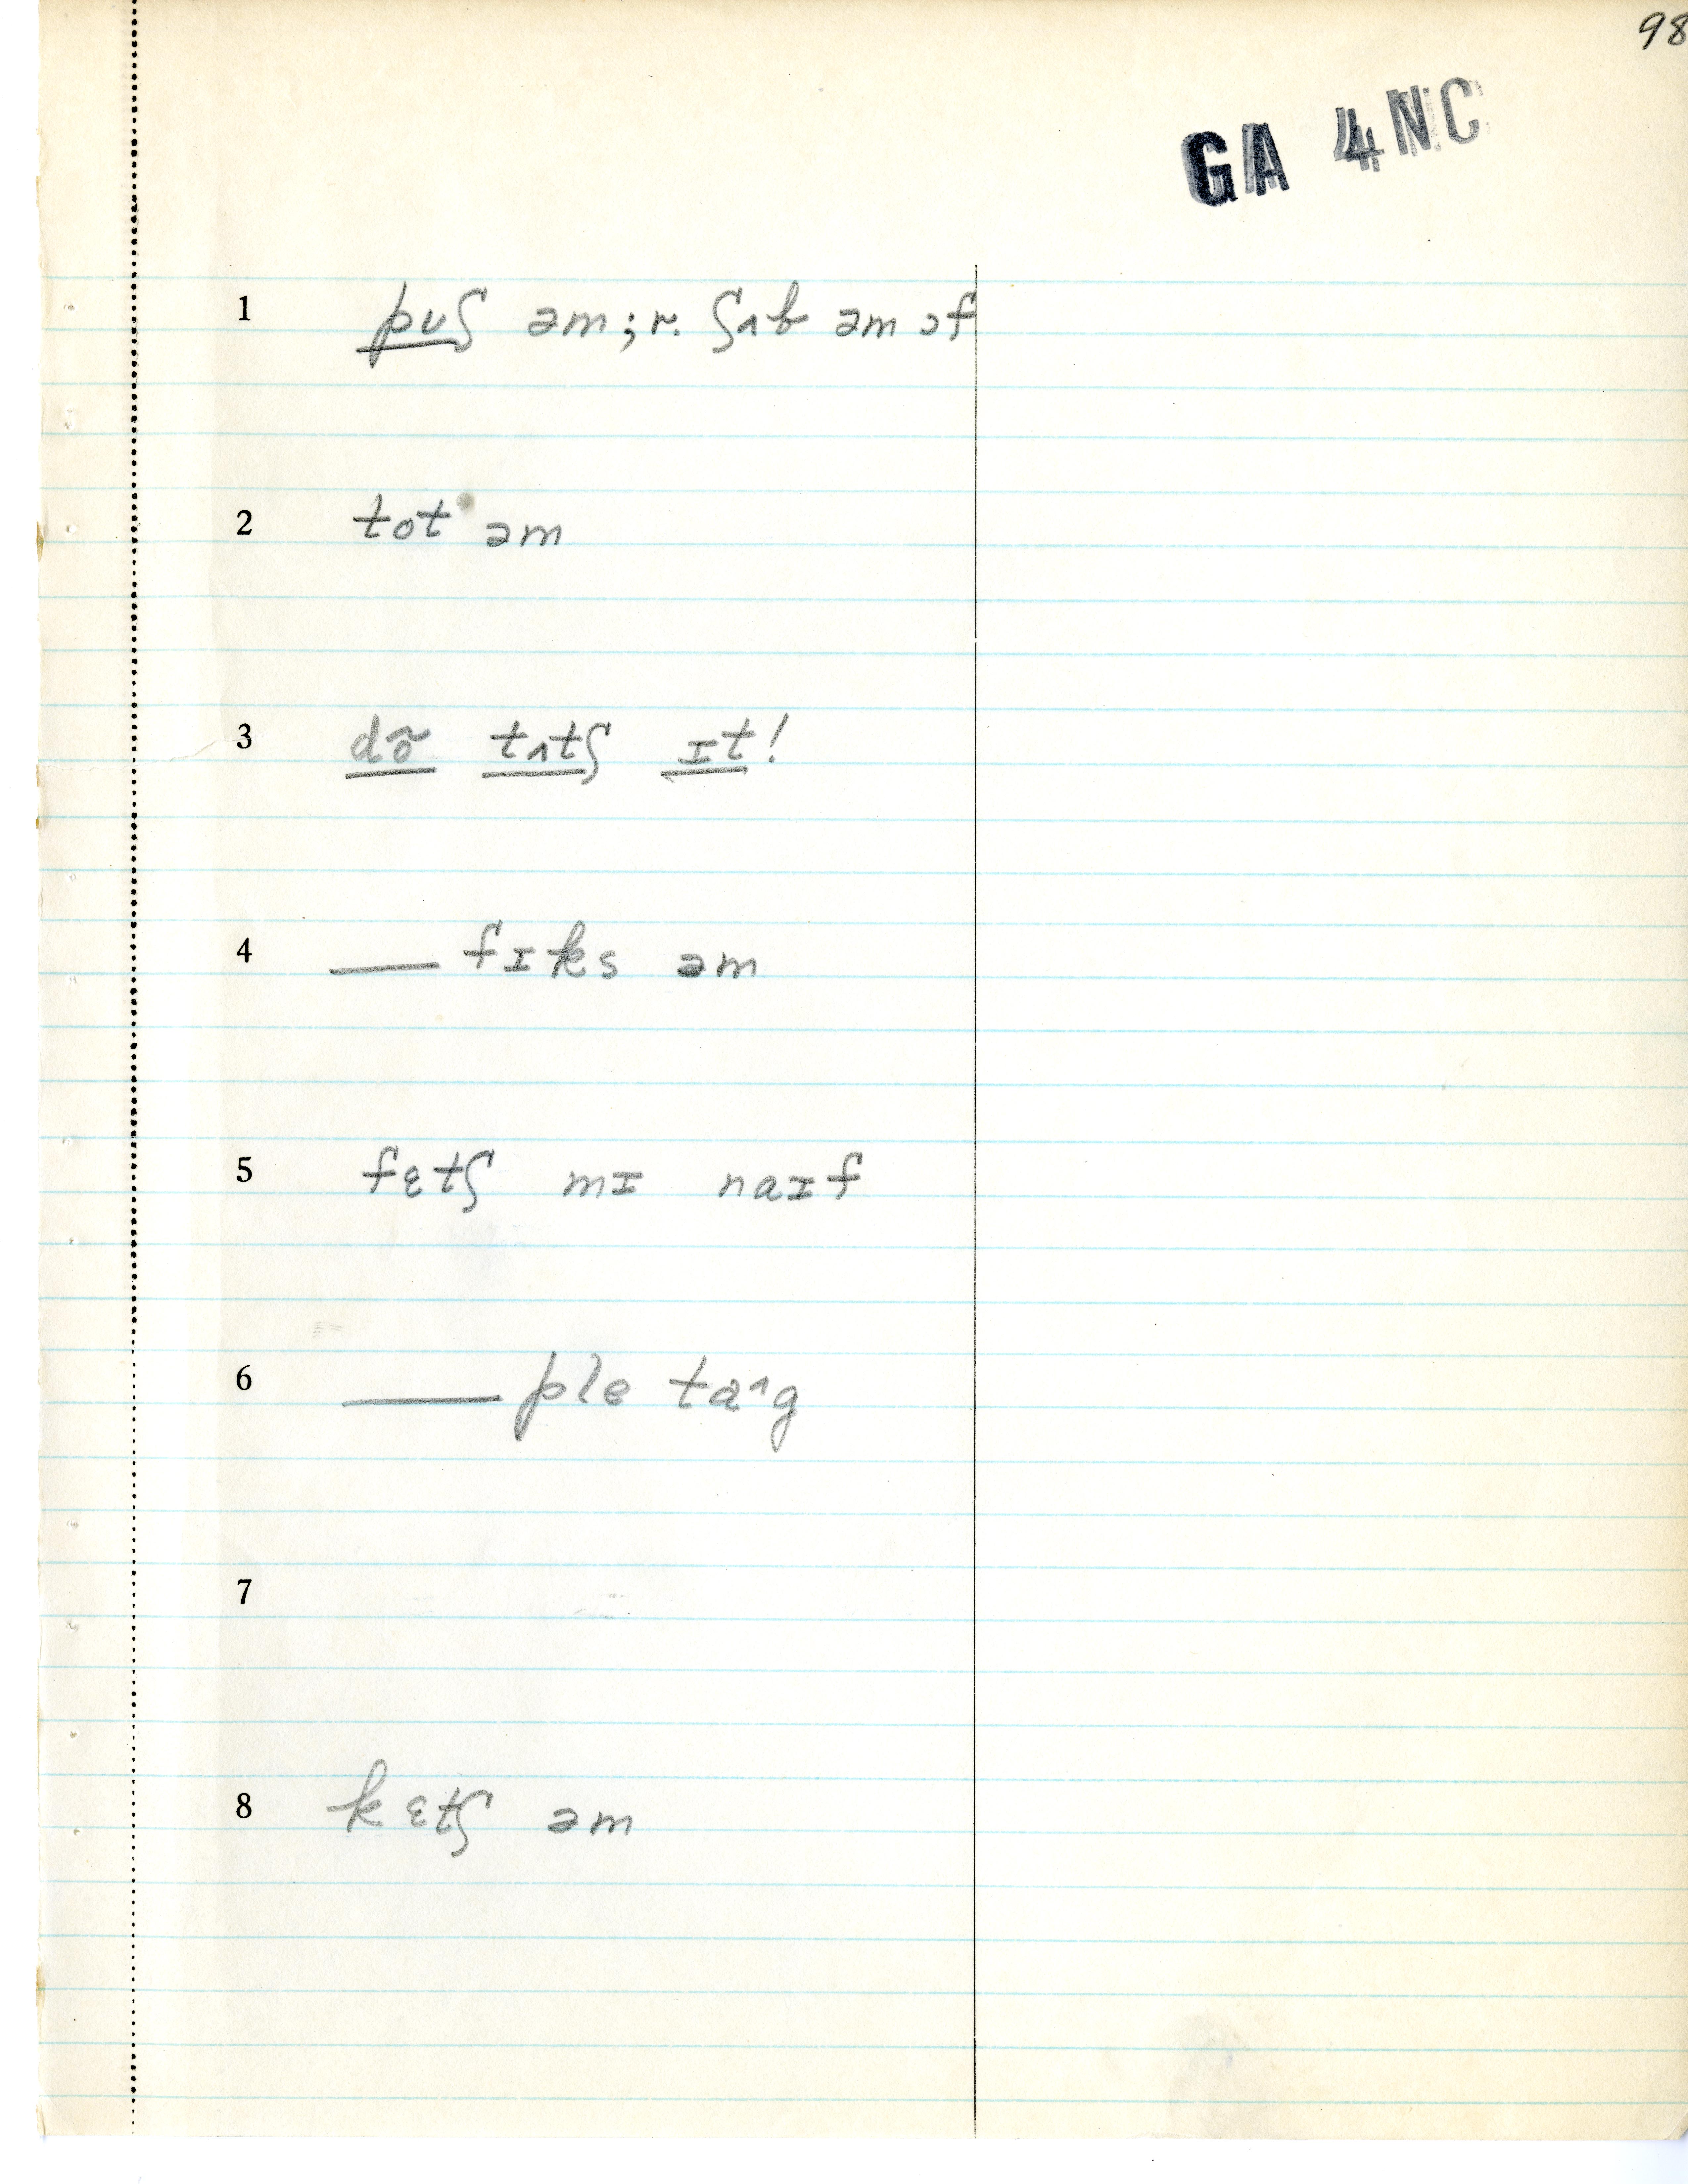 98
GA 4NC
1 pʊʃ əm; r. ʃʌb əm ɔf
2 tot əm
3 dõ tʌtʃ ɪt!
4 — fɪks əm
5 fɛtʃ mɪ naɪf
6 — ple taᶺg
7
8 kɛtʃ əm